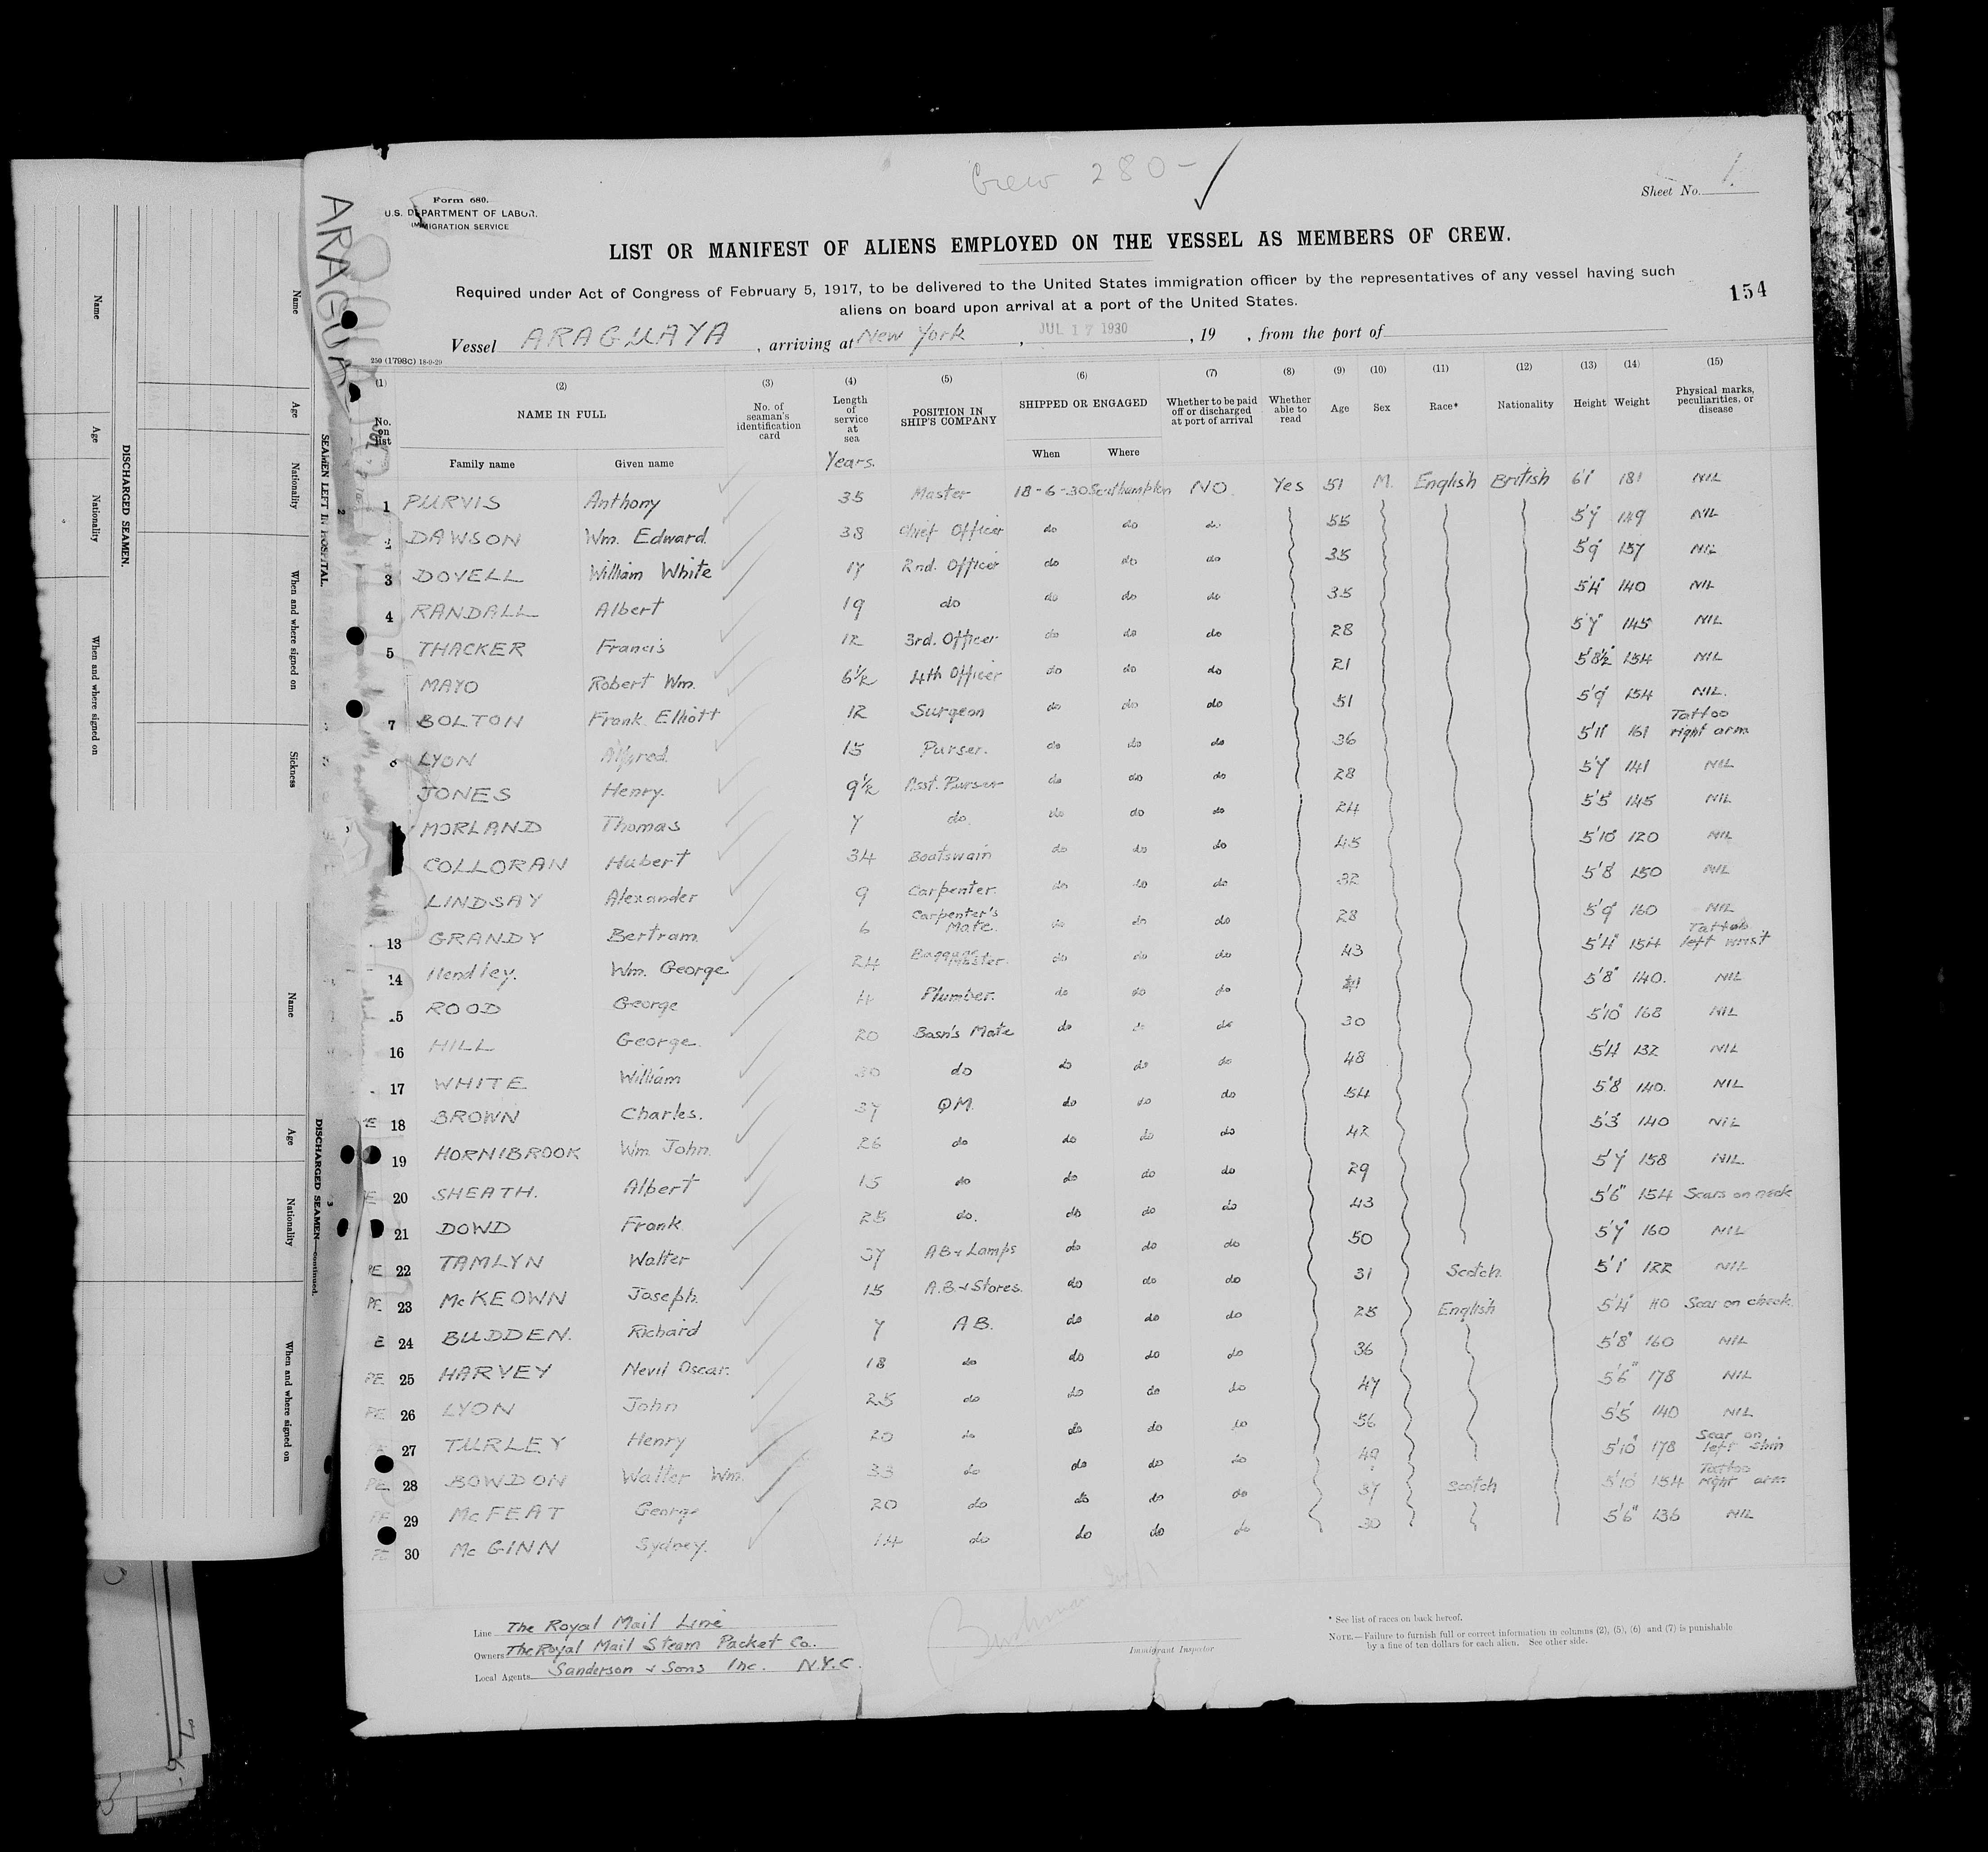 Crew 280 -
Sheet No. 1.
Form 680.
U.S. DEPARTMENT OF LABOR.
IMMIGRATION SERVICE
LIST OR MANIFEST OF ALIENS EMPLOYED ON THE VESSEL AS MEMBERS OF CREW.
Required under Act of Congress of February 5, 1917, to be delivered to the United States immigration officer by the representatives of any vessel having such
aliens on board upon arrival at a port of the United States.
154
Vessel ARAGUAYA, arriving at New York, JUL 17 1930, 19 , from the port of
250 (1798C) 18-9-29
(1) (2) (3) (4) (5) (6) (7) (8) (9) (10) (11) (12) (13) (14) (15)
No. on list NAME IN FULL No. of seaman's identification card Length of service at sea POSITION IN SHIP'S COMPANY SHIPPED OR ENGAGED Whether to be paid off or discharged at port of arrival Whether able to read Age Sex Race* Nationality Height Weight Physical marks, peculiarities, or disease
Family name Given name Years. When Where
1 PURVIS Anthony 35 Master 18-6-30 Southampton NO. Yes 51 M. English British 6'1" 181 NIL
2 DAWSON Wm. Edward. 38 Chief Officer do do do 55 5'7" 149 NIL
3 DOVELL William White 17 2nd. Officer do do do 35 5'9" 157 NIL
4 RANDALL Albert 19 do do do do 35 5'4" 140 NIL
5 THACKER Francis 12 3rd. Officer do do do 28 5'7" 145 NIL
MAYO Robert Wm. 6½ 4th Officer do do do 21 5'8½" 154 NIL
7 BOLTON Frank Elliott 12 Surgeon do do do 51 5'9" 154 NIL.
8 LYON Alfred. 15 Purser. do do do 36 5'11" 161 Tattoo right arm
JONES Henry. 9½ Asst. Purser do do do 28 5'7" 141 NIL
MORLAND Thomas 7 do do do do 24 5'5" 145 NIL
COLLORAN Hubert 34 Boatswain do do do 45 5'10" 120 NIL
LINDSAY Alexander 9 Carpenter. do do do 32 5'8" 150 NIL
13 GRANDY Bertram. 6 Carpenter's Mate. do do do 28 5'9" 160 NIL
14 Hendley. Wm. George 24 Baggage Master. do do do 43 5'4" 154 Tattoo left wrist
15 ROOD George 4 Plumber. do do do 5'8" 140. NIL
16 HILL George. 20 Bosn's Mate do do do 30 5'10" 168 NIL
17 WHITE William 30 do do do do 48 5'4" 132 NIL
18 BROWN Charles. 37 QM. do do do 54 5'8 140. NIL
19 HORNIBROOK Wm. John. 26 do do do do 42 5'3" 140 NIL
20 SHEATH. Albert 15 do do do do 29 5'7" 158 NIL.
21 DOWD Frank. 25 do. do do do 43 5'6" 154 Scars on neck
22 TAMLYN Walter 37 AB & Lamps do do do 50 5'7" 160 NIL
23 McKEOWN Joseph. 15 A.B. & Stores. do do do 31 Scotch. 5'1" 122 NIL
24 BUDDEN. Richard 7 AB. do do do 25 English 5'4" 110 Scar on cheek.
25 HARVEY Nevil Oscar. 18 do do do do 36 5'8" 160 NIL
26 LYON John 25 do do do do 47 5'6" 178 NIL
27 TURLEY Henry 20 do do do do 56 5'5" 140 NIL
28 BOWDON Walter Wm. 33 do do do do 49 5'10" 178 Scar on left shin
29 McFEAT George 20 do do do do 37 Scotch 5'10" 154 Tattoo right arm
30 McGINN Sydney. 14 do do do do 30 5'6" 136 NIL
Line The Royal Mail Line
Owners The Royal Mail Steam Packet Co.
Local Agents Sanderson & Sons Inc. N.Y.C.
Immigrant Inspector
* See list of races on back hereof.
NOTE.—Failure to furnish full or correct information in columns (2), (5), (6) and (7) is punishable
by a fine of ten dollars for each alien. See other side.
SEAMEN LEFT IN HOSPITAL.
Name Age Nationality When and where signed on Sickness
DISCHARGED SEAMEN.
Name Age Nationality When and where signed on
DISCHARGED SEAMEN—continued.
Name Age Nationality When and where signed on